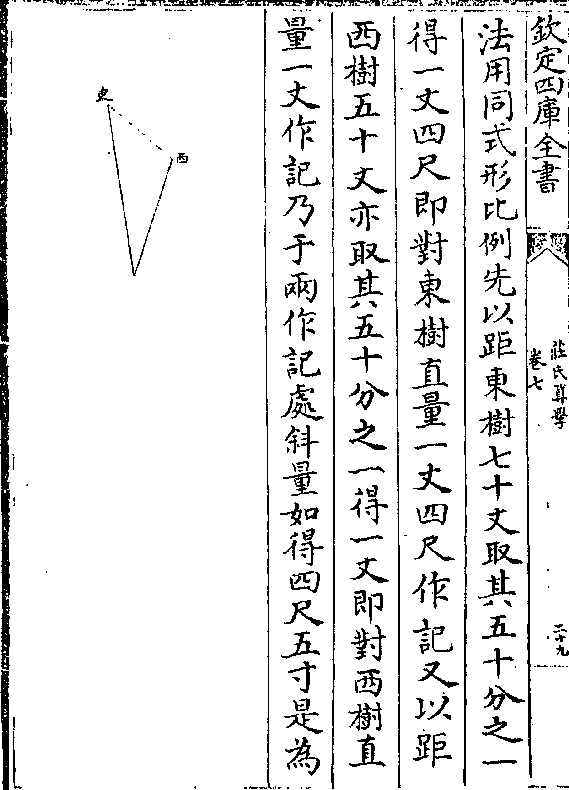 欽定四庫全書
莊氏算學
卷七
二十九
法用同式形比例先以距東樹七十丈取其五十分之一
得一丈四尺即對東樹直量一丈四尺作記又以距
西樹五十丈亦取其五十分之一得一丈即對西樹直
量一丈作記乃于兩作記處斜量如得四尺五寸是為
西
東